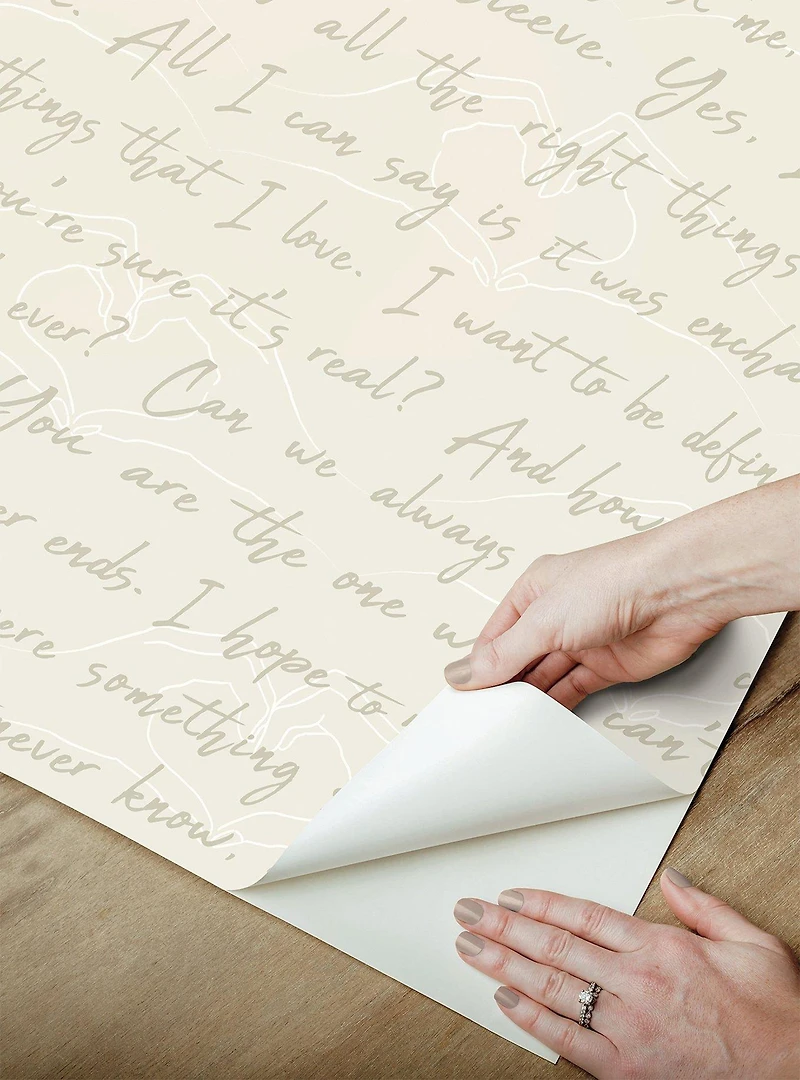 me,
sleeve. Yes,
all the right things
All I can say is it was encha
things that I love. I want to be defin
ou're sure it's real? And how
ever? Can we always can't
You are the one w
er ends. I hope to
ere something
never know,